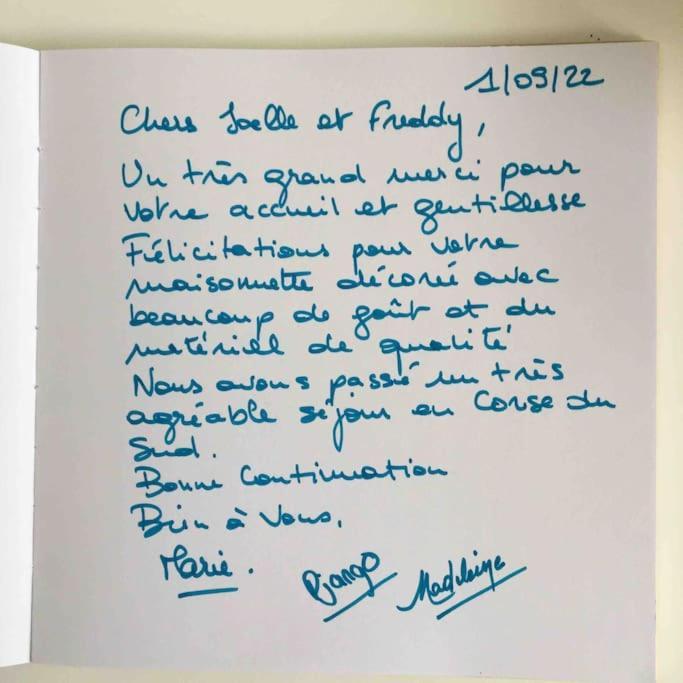 1/09/22
Chers Joelle et Freddy,
Un très grand merci pour
votre accueil et gentillesse
Félicitations pour votre
maisonnette décorée avec
beaucoup de goût et du
matériel de qualité
Nous avons passé un très
agréable séjour en Corse du
Sud.
Bonne Continuation
Bien à Vous,
Marie.
Django
Madeleine